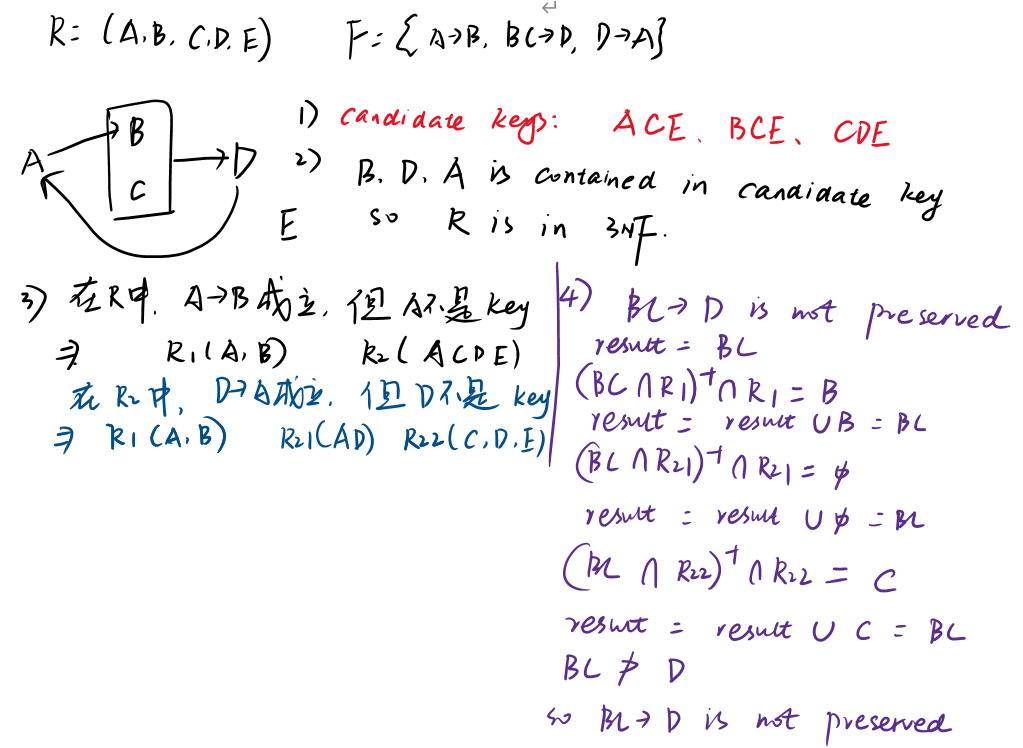 R = (A, B, C, D, E) F = { A→B, BC→D, D→A}
A B C D E
1) candidate keys: ACE、BCE、CDE
2) B. D. A is contained in candidate key
so R is in 3NF.
3) 在R中, A→B成立, 但A不是key
⇒ R1(A, B) R2( ACDE)
在R2中, D→A成立, 但D不是key
⇒ R1(A, B) R21(AD) R22(C, D, E)
4) BC→D is not preserved
result = BC
(BC ∩ R1)+ ∩ R1 = B
result = result ∪ B = BC
(BC ∩ R21)+ ∩ R21 = ϕ
result = result ∪ ϕ = BC
(BC ∩ R22)+ ∩ R22 = C
result = result ∪ C = BC
BC ⇏ D
so BC→D is not preserved